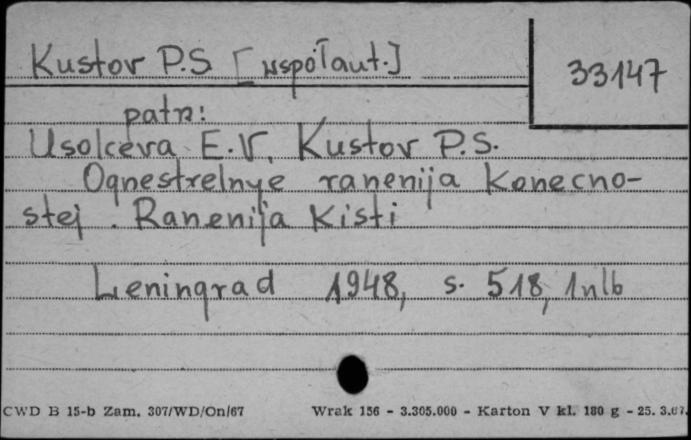 Kustov P.S. [współaut.]
33147
patrz:
Usolceva E.V., Kustov P.S.
Ognestrelnye ranenija konecno-
stej. Ranenija Kisti
Leningrad 1948, s. 518, 1nlb
CWD B 15-b Zam. 307/WD/On/67 Wrak 156 - 3.305.000 - Karton V kl. 180 g - 25. 3.67.